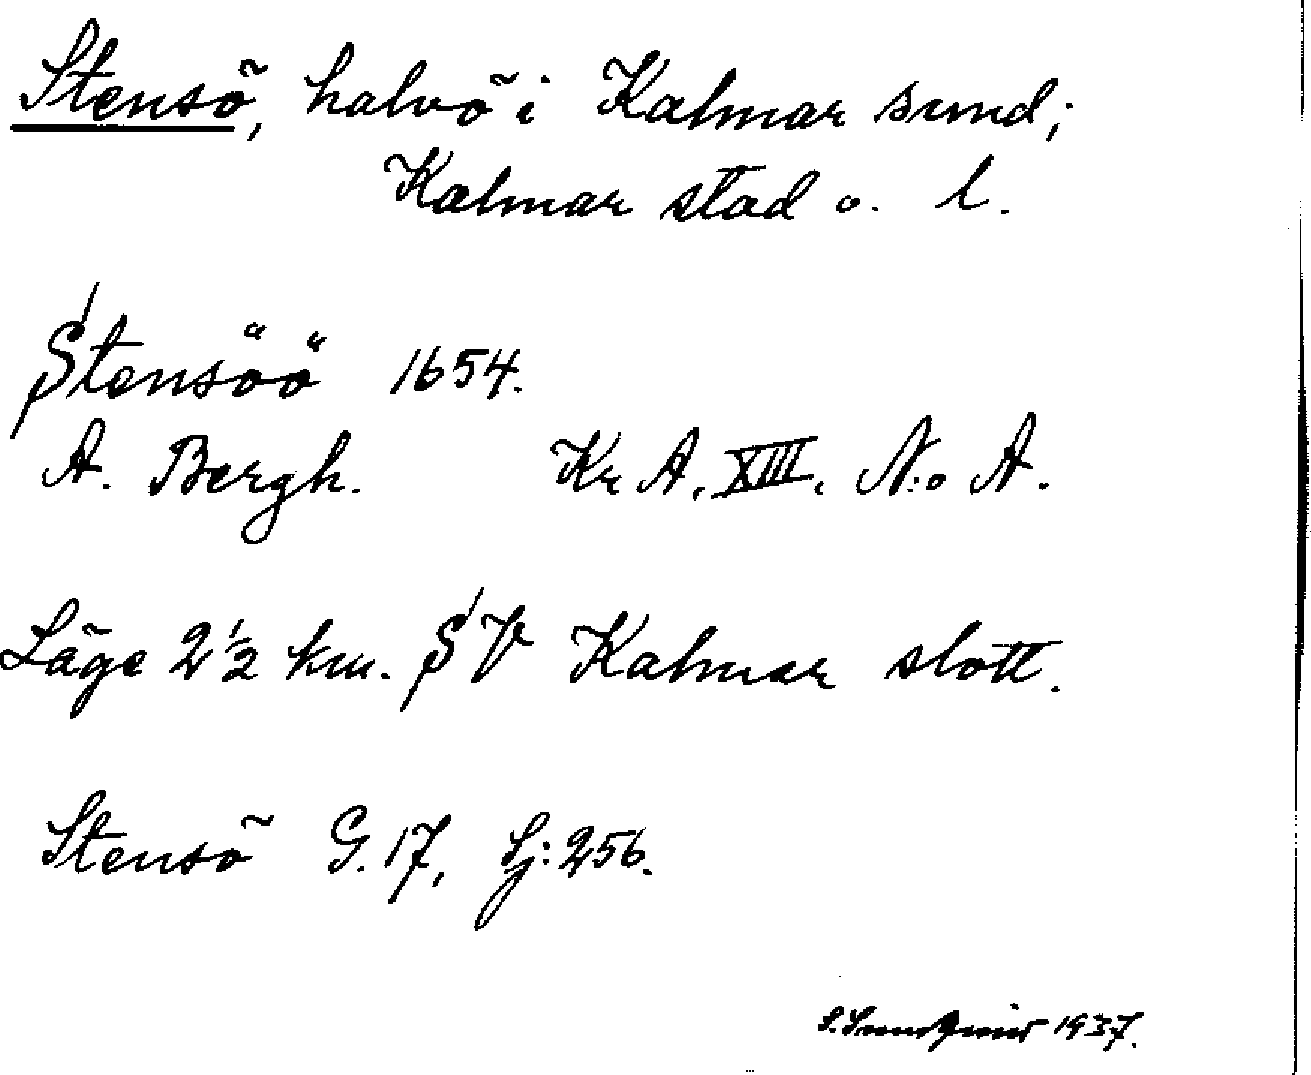 Stensö, halvö i Kalmar sund;
Kalmar stad o. l.
Stensöö 1654.
A. Bergh. Kr A, XIII, N:o A.
Läge 2½ km. SV Kalmar slott.
Stensö G. 17, Sj: 256.
S. Sundqvist 1937.